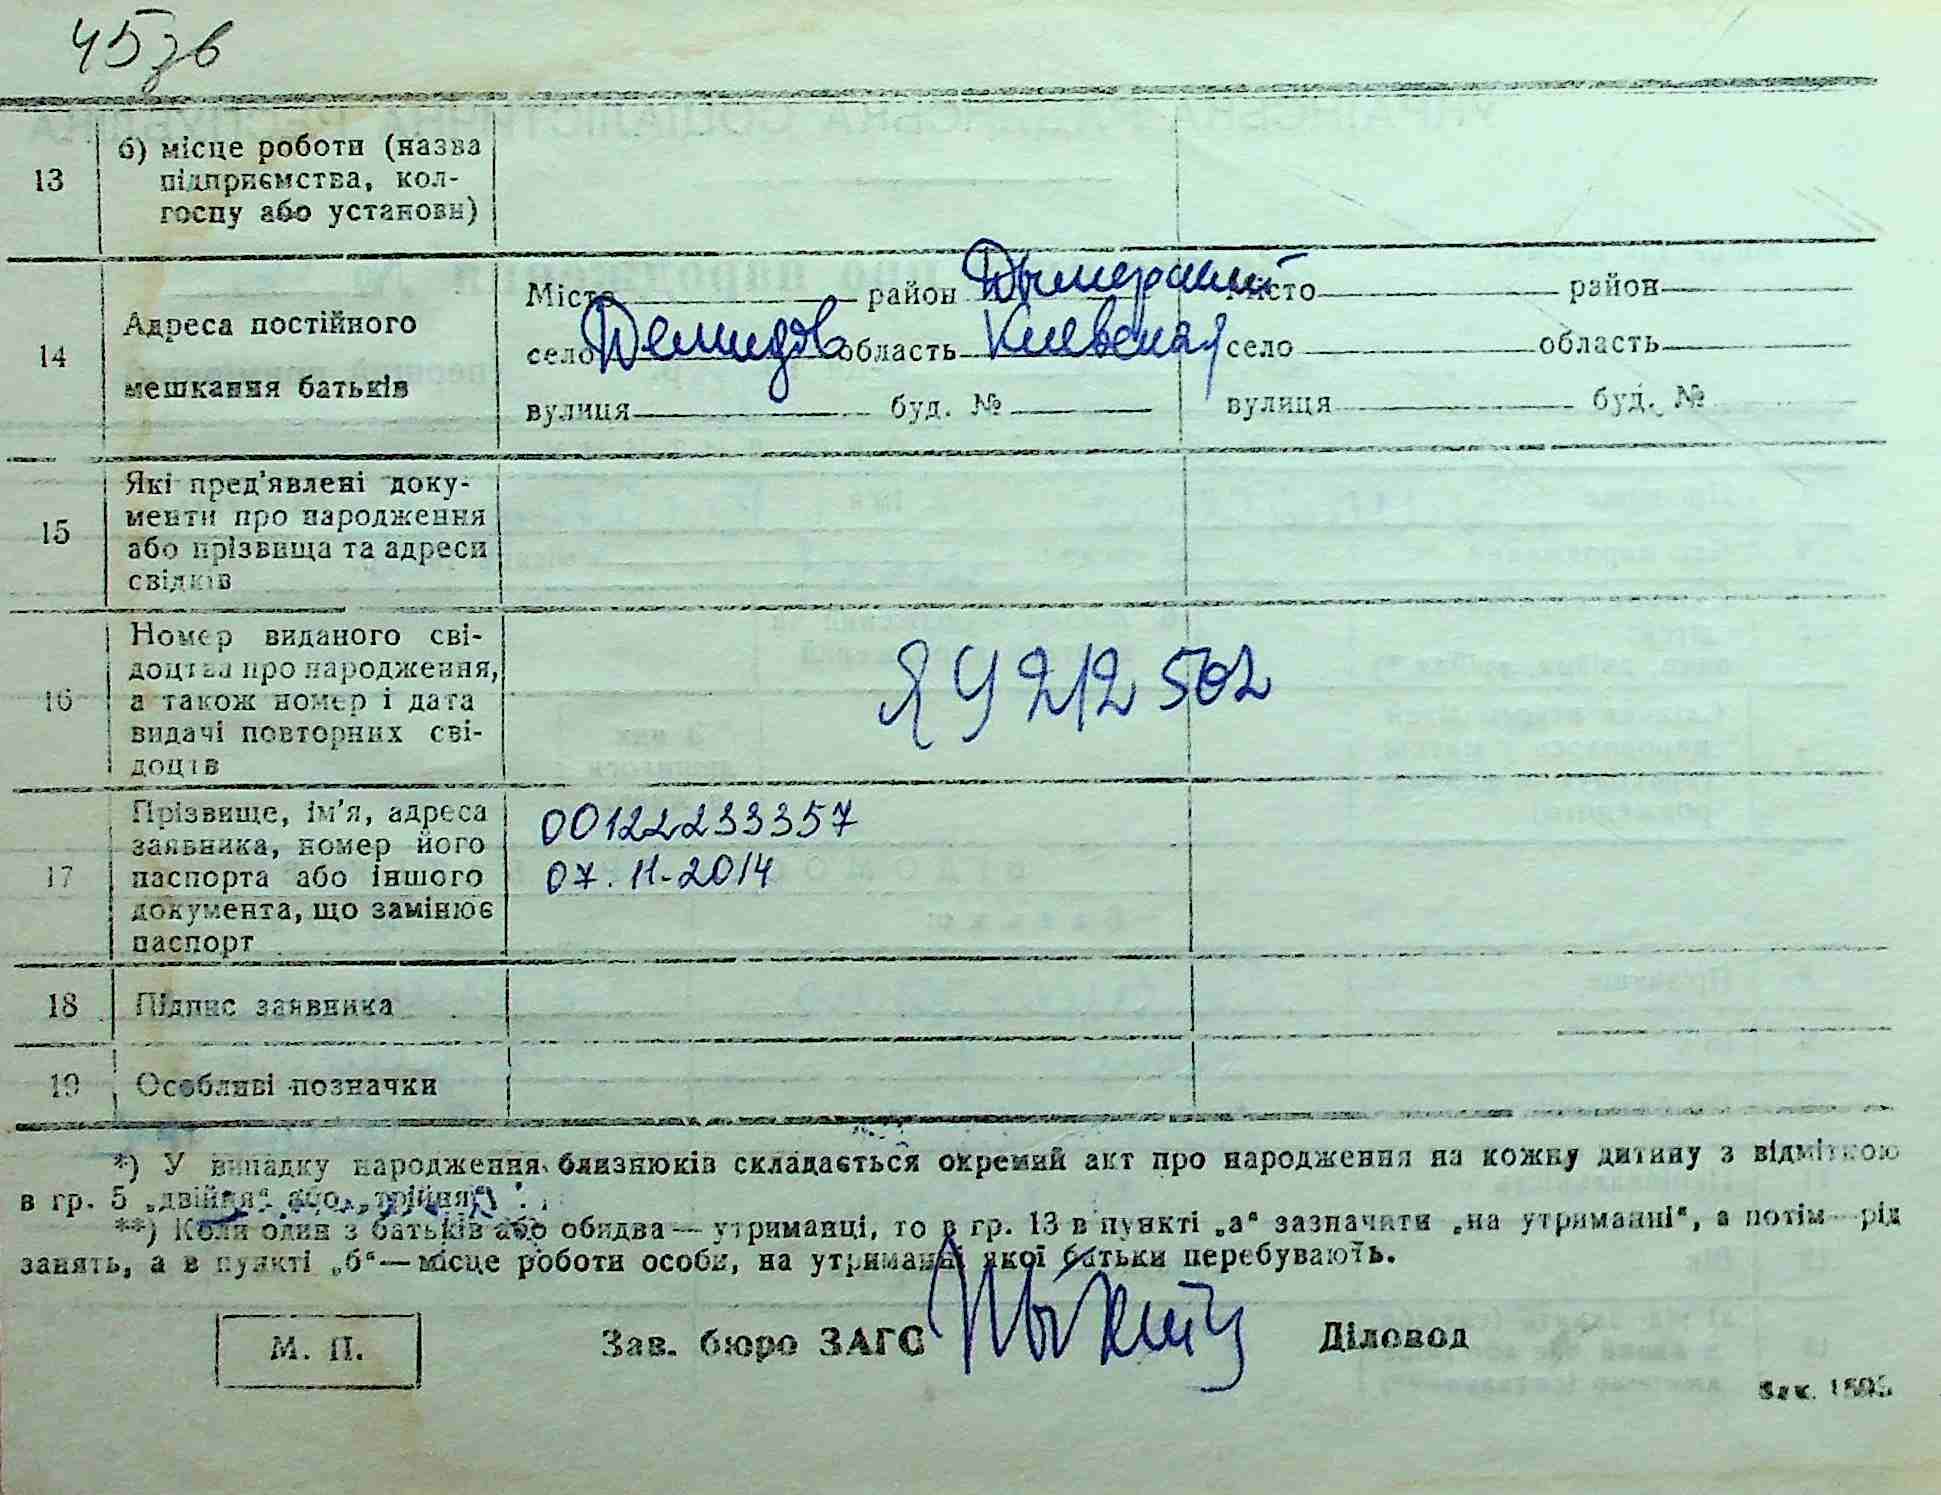 45зв
13
б) місце роботи (назва
підприємства, кол-
госпу або установи)
14
Адреса постійного
мешкання батьків
Місто район Дымерский
село Демидов область Киевская
вулиця буд. №
Місто район
село область
вулиця буд. №
15
Які пред'явлені доку-
менти про народження
або прізвища та адреси
свідків
16
Номер виданого сві-
доцтва про народження,
а також номер і дата
видачі повторних сві-
доцтв
ЯЧ 212502
17
Прізвище, ім'я, адреса
заявника, номер його
паспорта або іншого
документа, що замінює
паспорт
00122233357
07.11-2014
18
Підпис заявника
19
Особливі позначки
*) У випадку народження близнюків складається окремий акт про народження на кожну дитину з відміткою
в гр. 5 „двійня“ або „трійня“.
**) Коли один з батьків або обидва — утриманці, то в гр. 13 в пункті „а“ зазначати „на утриманні“, а потім — рід
занять, а в пункті „б“ — місце роботи особи, на утриманні якої батьки перебувають.
М. П.
Зав. бюро ЗАГС
Діловод
Зак. 1595